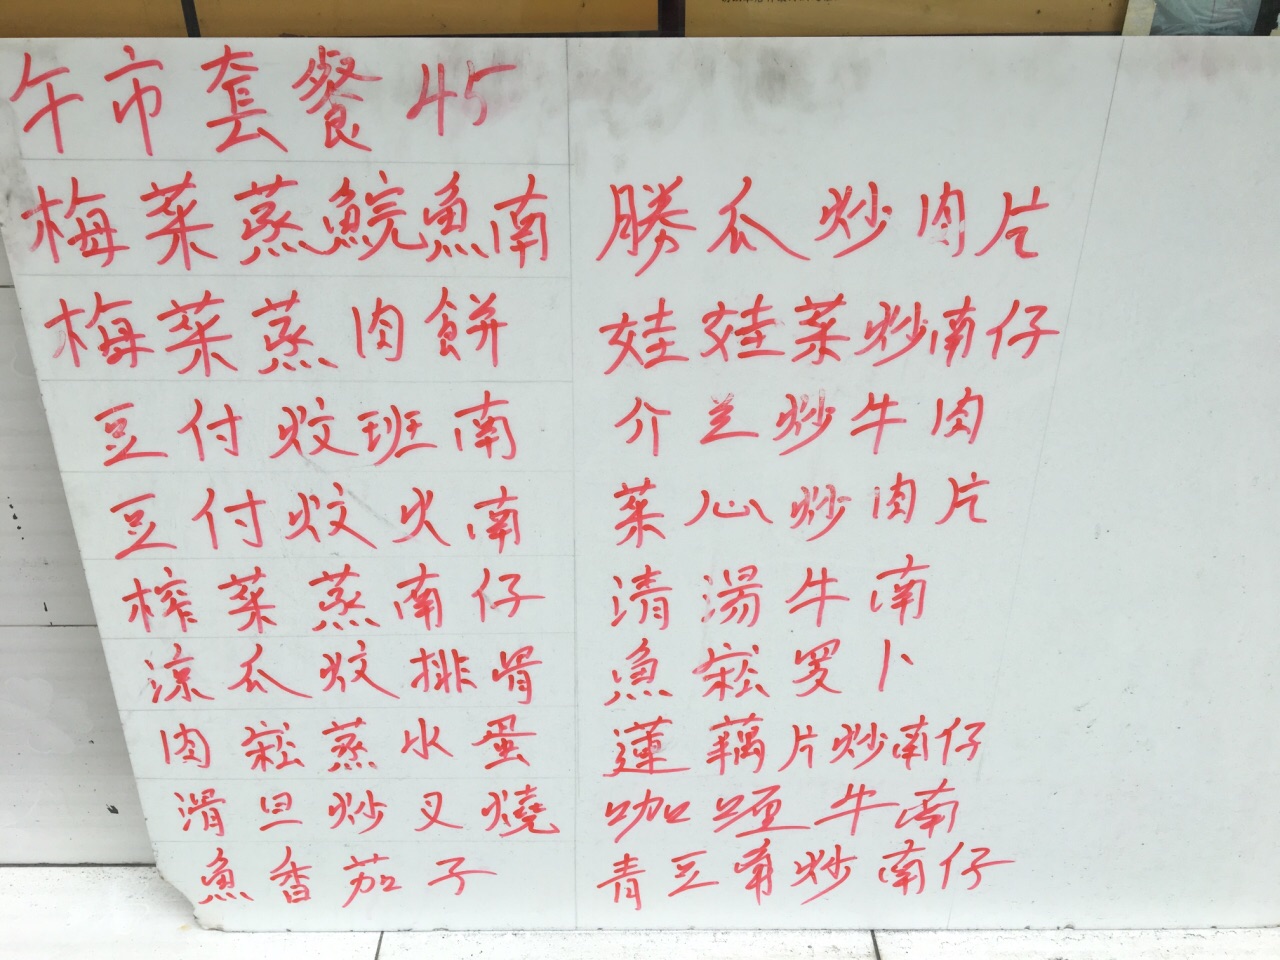 午市套餐 45
梅菜蒸鯇魚南
梅菜蒸肉餅
豆付炆班南
豆付炆火南
榨菜蒸南仔
涼瓜炆排骨
肉崧蒸水蛋
滑旦炒叉燒
魚香茄子
勝瓜炒肉片
娃娃菜炒南仔
介兰炒牛肉
菜心炒肉片
清湯牛南
魚崧罗卜
蓮藕片炒南仔
咖喱牛南
青豆角炒南仔